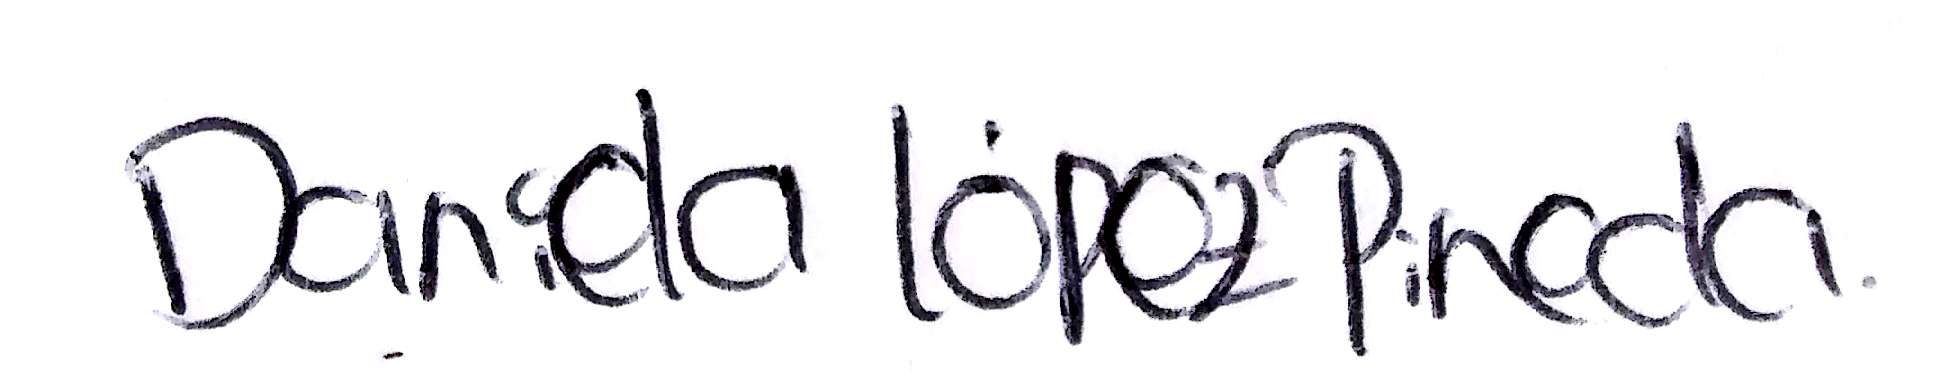 Daniela López Pineda.